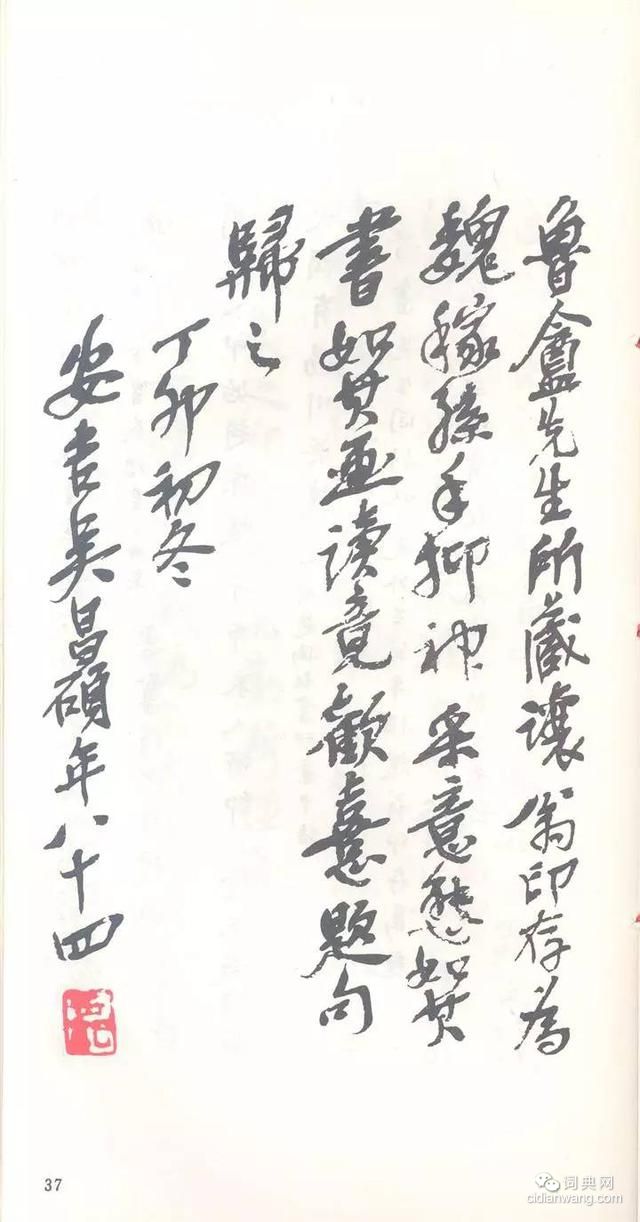 魯盦先生所藏讓翁印存為
魏稼孫手抑神采意態如其
書如其画讀竟歡憙題句
歸之
丁卯初冬
安吉吴昌碩年八十四
37
词典网
cidianwang.com